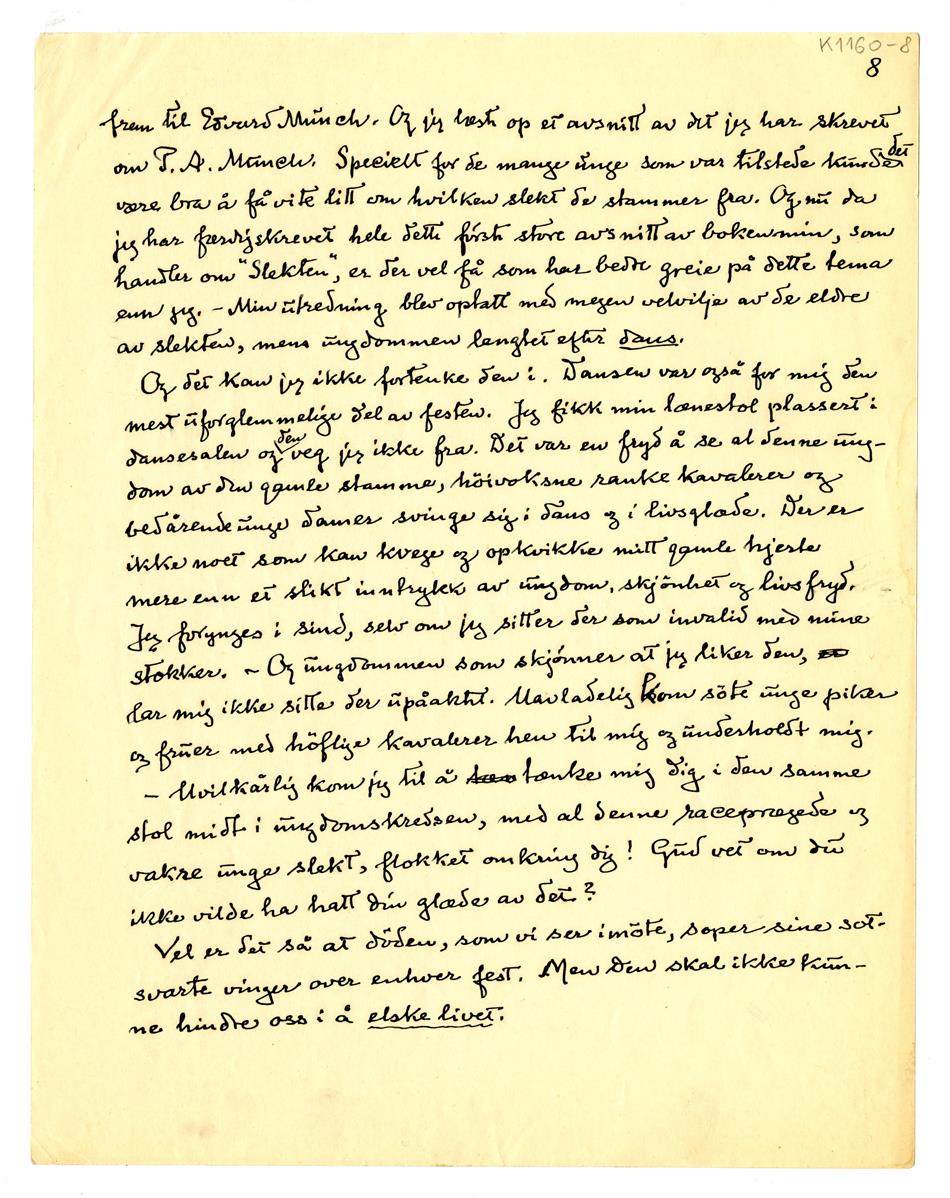 K1160-8
8
frem til Edvard Munch. Og jeg læste op et avsnitt av det jeg har skrevet
om P. A. Munch. Specielt for de mange unge som var tilstede kunde det
være bra å få vite litt om hvilken slekt de stammer fra. Og nu da
jeg har færdigskrevet hele dette første store avsnitt av boken min, som
handler om "Slekten", er der vel få som har bedre greie på dette tema
enn jeg. – Min utredning blev optatt med megen velvilje av de eldre
av slekten, mens ungdommen lengtet efter dans.
Og det kan jeg ikke fortenke den i. Dansen var også for mig den
mest uforglemmelige del av festen. Jeg fikk min lænestol plassert i
dansesalen og den veg jeg ikke fra. Det var en fryd å se al denne ung-
dom av den gamle stamme, höivoksne ranke kavalerer og
bedårende unge damer svinge sig i dans og i livsglæde. Der er
ikke noet som kan kvege og opkvikke mitt gamle hjerte
mere enn et slikt inntrykk av ungdom, skjönhet og livsfryd.
Jeg forynges i sind, selv om jeg sitter der som invalid med mine
stokker. – Og ungdommen som skjönner at jeg liker den,
lar mig ikke sitte der upåaktet. Uavladelig kom söte unge piker
og fruer med höflige kavalerer hen til mig og underholdt mig.
– Uvilkårlig kom jeg til å tænke mig dig i den samme
stol midt i ungdomskredsen, med al denne raceprægede og
vakre unge slekt, flokket omkring dig! Gud vet om du
ikke vilde ha hatt din glæde av det?
Vel er det så at döden, som vi ser imöte, soper sine sot-
svarte vinger over enhver fest. Men den skal ikke kun-
ne hindre oss i å elske livet.